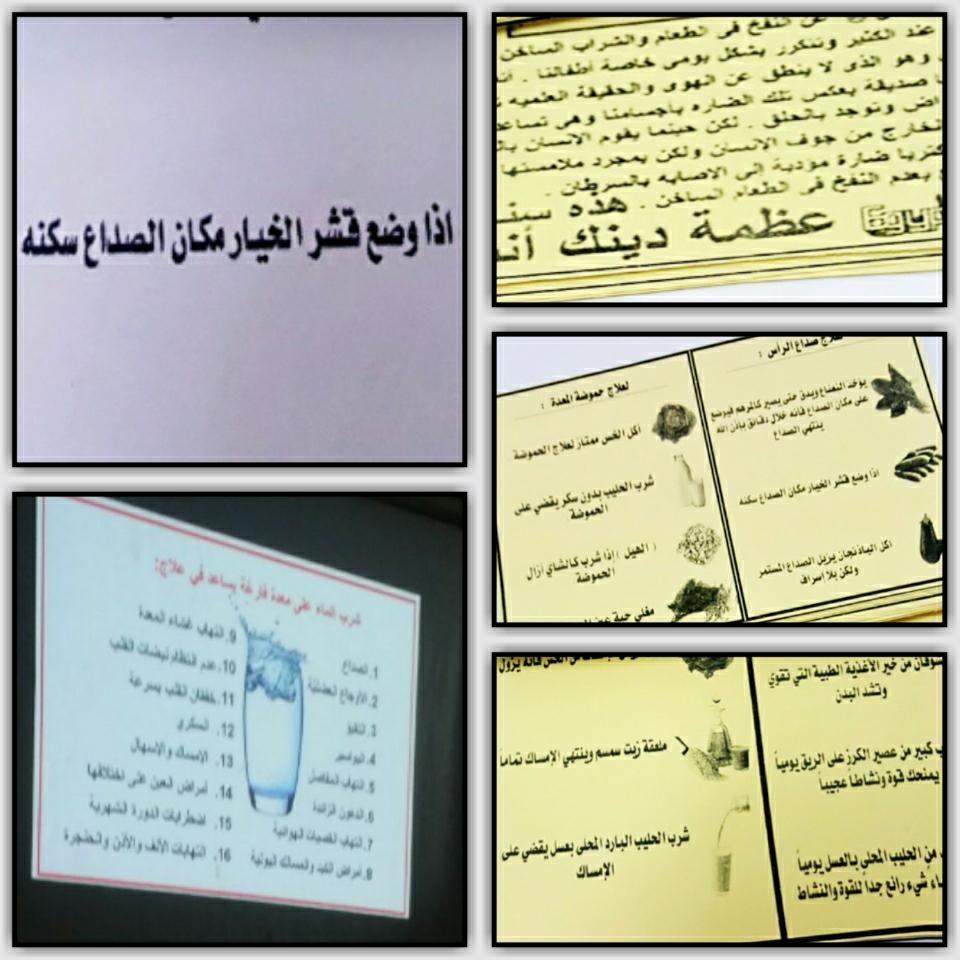 اذا وضع قشر الخيار مكان الصداع سكنه
النفخ فى الطعام والشراب الساخن
عند الكثير وتتكرر بشكل يومى خاصة أطفالنا .
وهو الذى لا ينطق عن الهوى والحقيقة العلميه
صديقة بعكس تلك الضاره بأجسامنا وهى تساعد
وتوجد بالحلق . لكن حينما يقوم الانسان
الخارج من جوف الإنسان ولكن بمجرد ملامستها
ضارة مؤدية إلى الاصابه بالسرطان .
بعدم النفخ فى الطعام الساخن . هذه
عظمة دينك
صداع الرأس :
يؤخذ النعناع ويدق حتى يصير كالمرهم فيوضع
على مكان الصداع فانه خلال دقائق بإذن الله
ينتهي الصداع
اذا وضع قشر الخيار مكان الصداع سكنه
اكل الباذنجان يزيل الصداع المستمر
ولكن بلا اسراف
لعلاج حموضة المعدة :
أكل الخس ممتاز لعلاج الحموضة
شرب الحليب بدون سكر يقضي على
الحموضة
( الهيل ) إذا شرب كالشاي أزال
الحموضة
مغلي حبة
شرب الماء على معدة فارغة يساعد في علاج:
1. الصداع
2. الأوجاع العضليّة
3.
4. البواسير
5. التهاب المفاصل
6. الدهون الزائدة
7. التهاب القصبات الهوائية
8. أمراض الكبد والمسالك البولية
9. التهاب غشاء المعدة
10. عدم انتظام نبضات القلب
11. خفقان القلب بسرعة
12. السكري
13. الامساك والاسهال
14. أمراض العين على اختلافها
15. اضطرابات الدورة الشهرية
16. التهابات الأنف والأذن والحنجرة
من خير الأغذية الطبية التي تقوي
وتشد البدن
كبير من عصير الكرز على الريق يومياً
يمنحك قوة ونشاطاً عجيباً
من الحليب المحلى بالعسل يومياً
شيء رائع جداً للقوة والنشاط
ملعقة زيت سمسم وينتهي الإمساك تماماً
شرب الحليب البارد المحلى بعسل يقضي على
الإمساك